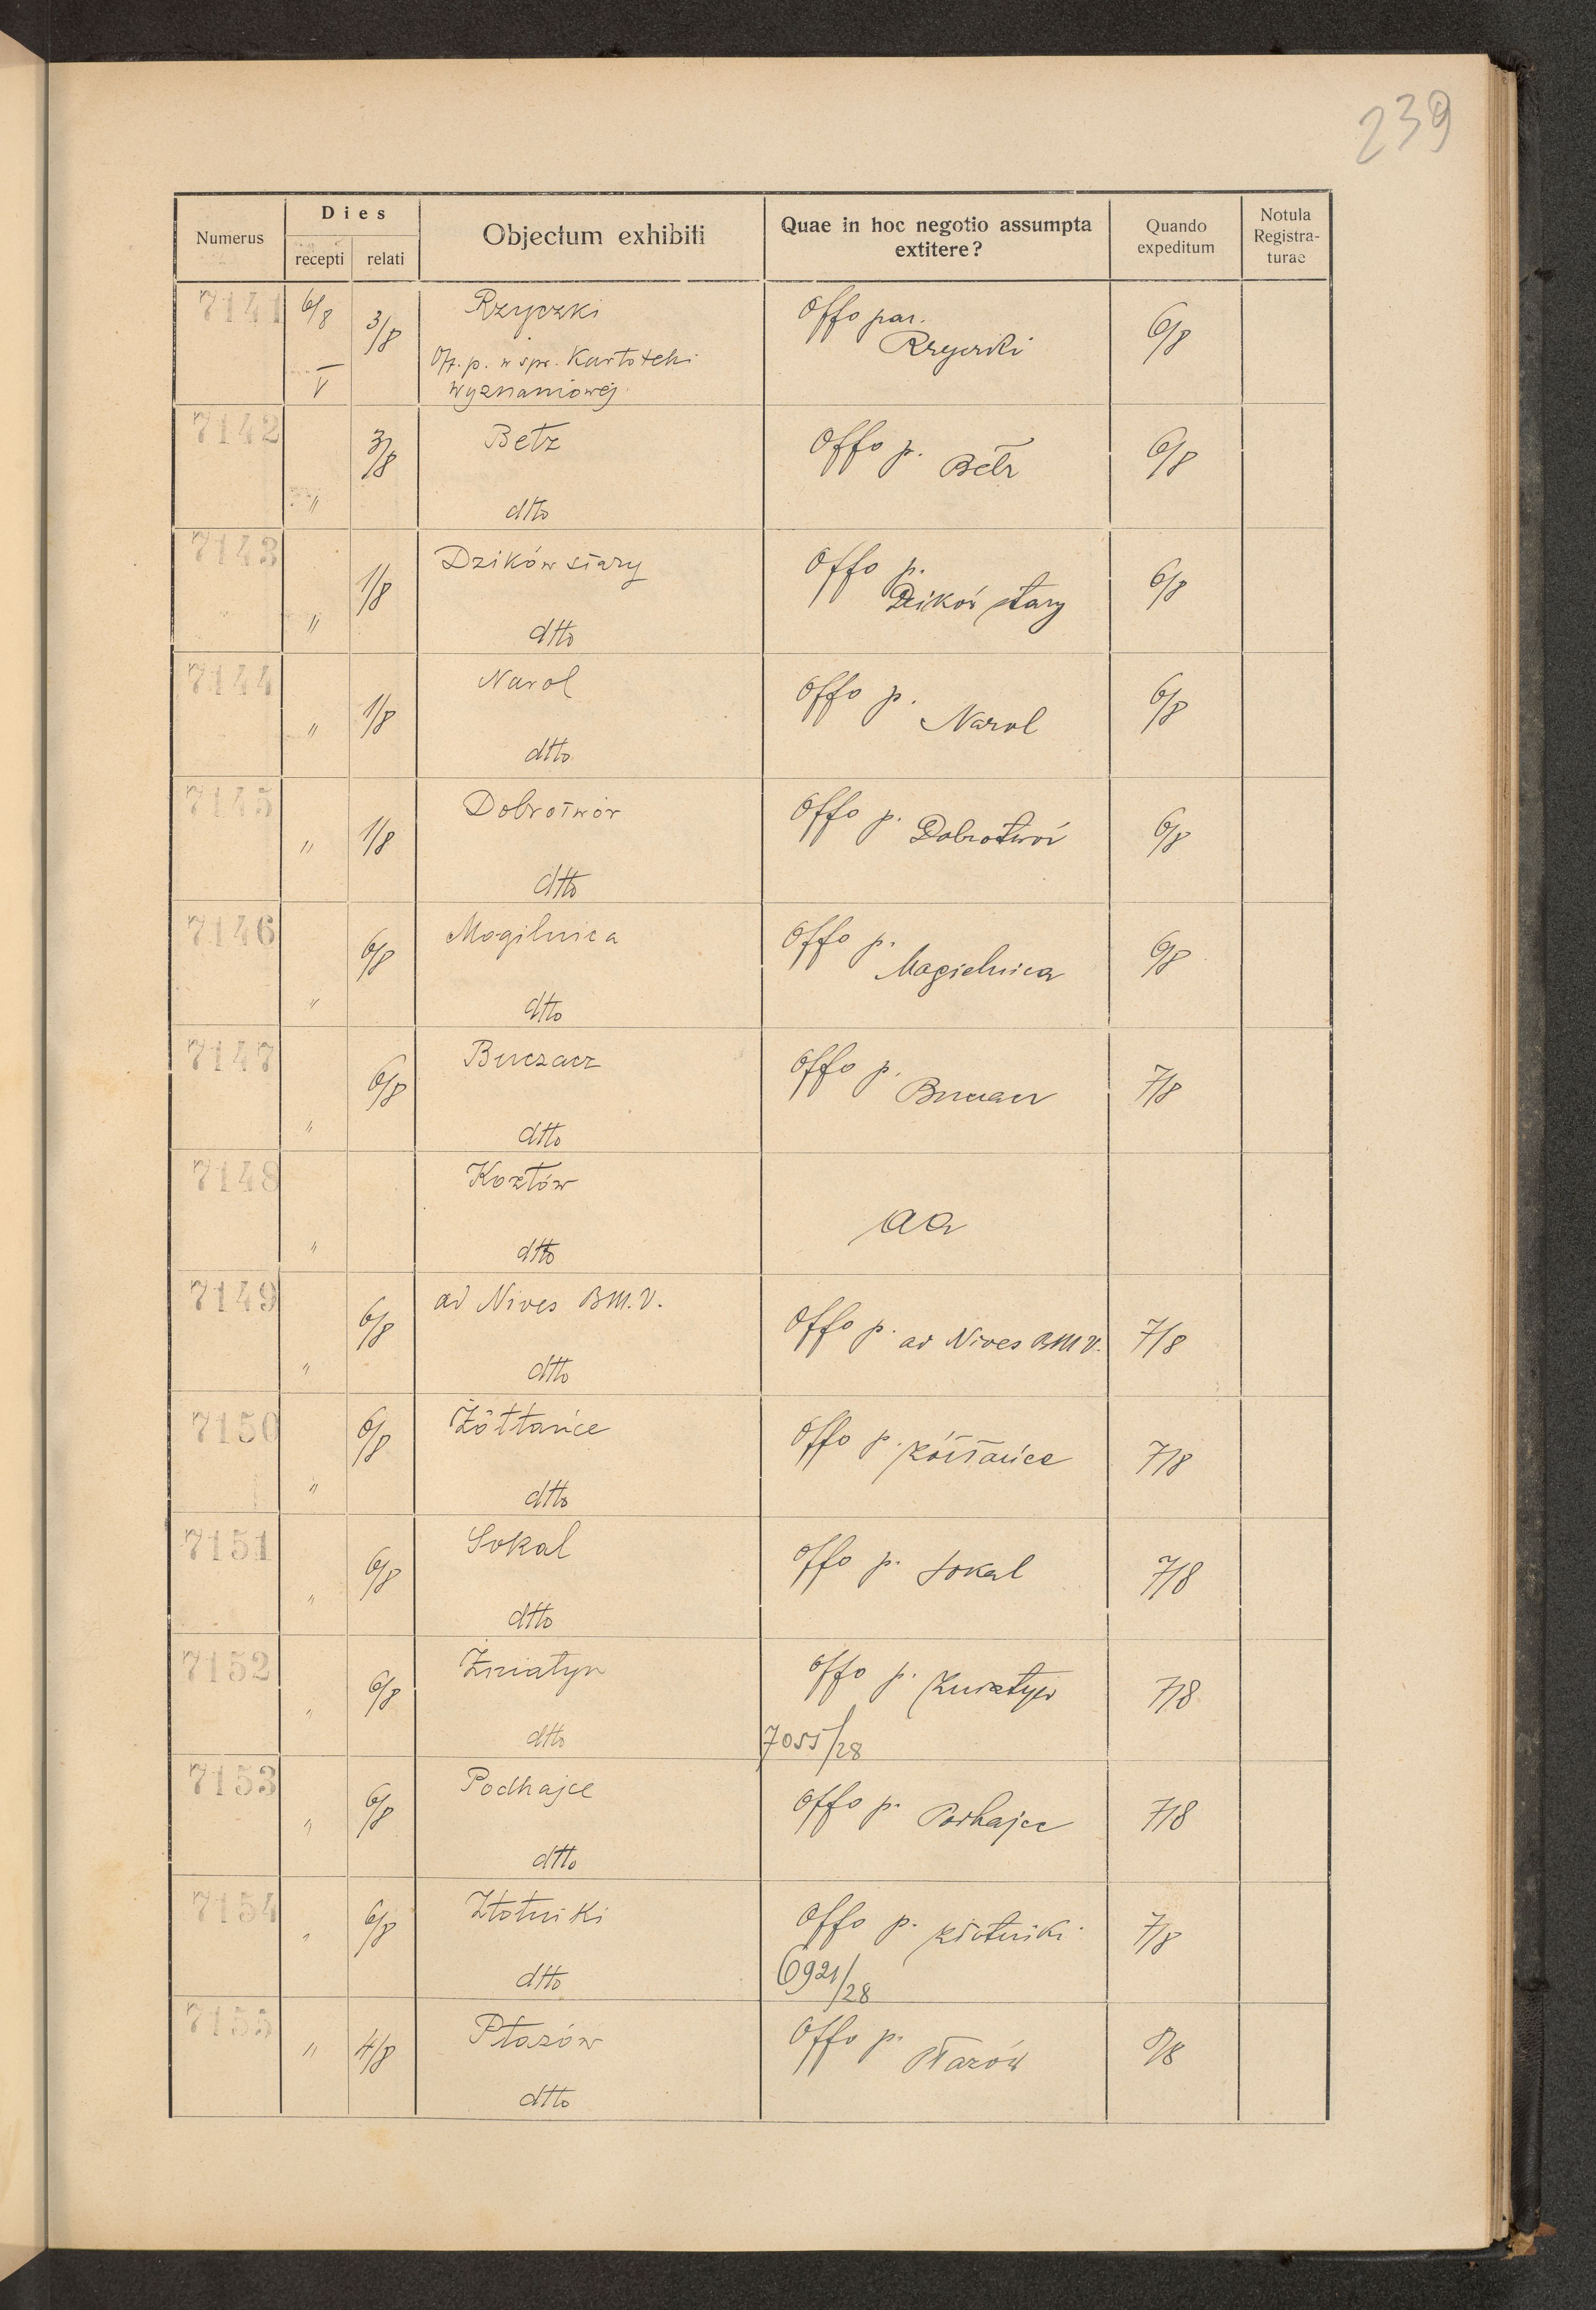 239
Numerus
Dies
recepti
relati
Objectum exhibiti
Quae in hoc negotio assumpta
extitere?
Quando
expeditum
Notula
Registra-
turae
7141 6/8 3/8 Rzyczki Offo par. 6/8
Rzyczki
V Off. p. w spr. Kartoteki
wyznaniowej
7142 3/8 Bełz Offo p. Bełz 6/8
" dtto
7143 1/8 Dzików stary Offo p. 6/8
Dzików stary
" dtto
7144 " 1/8 Narol Offo p. Narol 6/8
dtto
7145 " 1/8 Dobrotwór Offo p. Dobrotwór 6/8
dtto
7146 6/8 Mogilnica Offo p. Mogielnica 6/8
" dtto
7147 6/8 Buczacz Offo p. Buczacz 7/8
" dtto
7148 Kozłów aa
" dtto
7149 6/8 ad Nives BM.V. Offo p. ad Nives BMV. 7/8
" dtto
7150 6/8 Żółtańce Offo p. Żółtańce 7/8
" dtto
7151 6/8 Sokal Offo p. Sokal 7/8
" dtto
7152 6/8 Żniatyn Offo p. Żniatyn 7/8
" dtto 7055/28
7153 6/8 Podhajce Offo p. Podhajce 7/8
" dtto
7154 6/8 Złotniki Offo p. Złotniki 7/8
" dtto 6921/28
7155 " 4/8 Płazów Offo p. Płazów 8/8
dtto